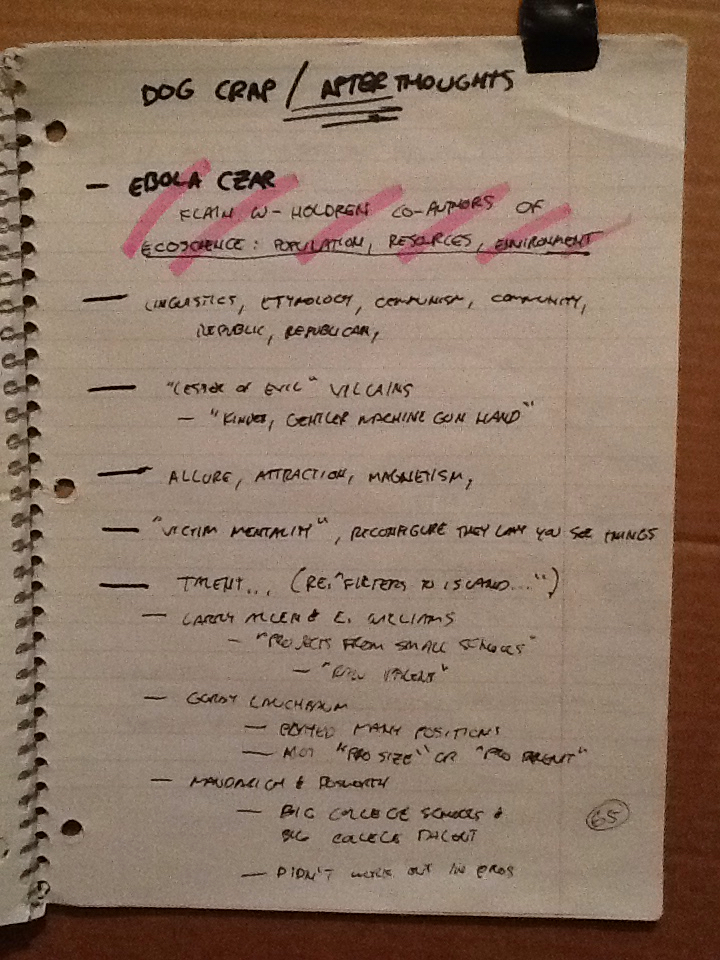 DOG CRAP / AFTERTHOUGHTS
— EBOLA CZAR
KLAIN W- HOLDREN CO-AUTHORS OF
ECOSCIENCE: POPULATION, RESOURCES, ENVIRONMENT
— LINGUISTICS, ETYMOLOGY, COMMUNISM, COMMUNITY,
REPUBLIC, REPUBLICAN,
— "LESSER OF EVIL" VILLAINS
— "KINDER, GENTLER MACHINE GUN HAND"
— ALLURE, ATTRACTION, MAGNETISM,
— "VICTIM MENTALITY", RECONFIGURE THEY WAY YOU SEE THINGS
— TALENT... (RE: "FLIPPERS TO ISLAND...")
— LARRY ALLEN & E. WILLIAMS
— "PROJECTS FROM SMALL SCHOOLS"
— "RAW TALENT"
— GORDY
— PLAYED MANY POSITIONS
— NOT "PRO SIZE" OR "PRO TALENT"
— MANDARICH & BOSWORTH
— BIG COLLEGE SCHOOLS &
BIG COLLEGE TALENT
65
— DIDN'T WORK OUT IN PROS